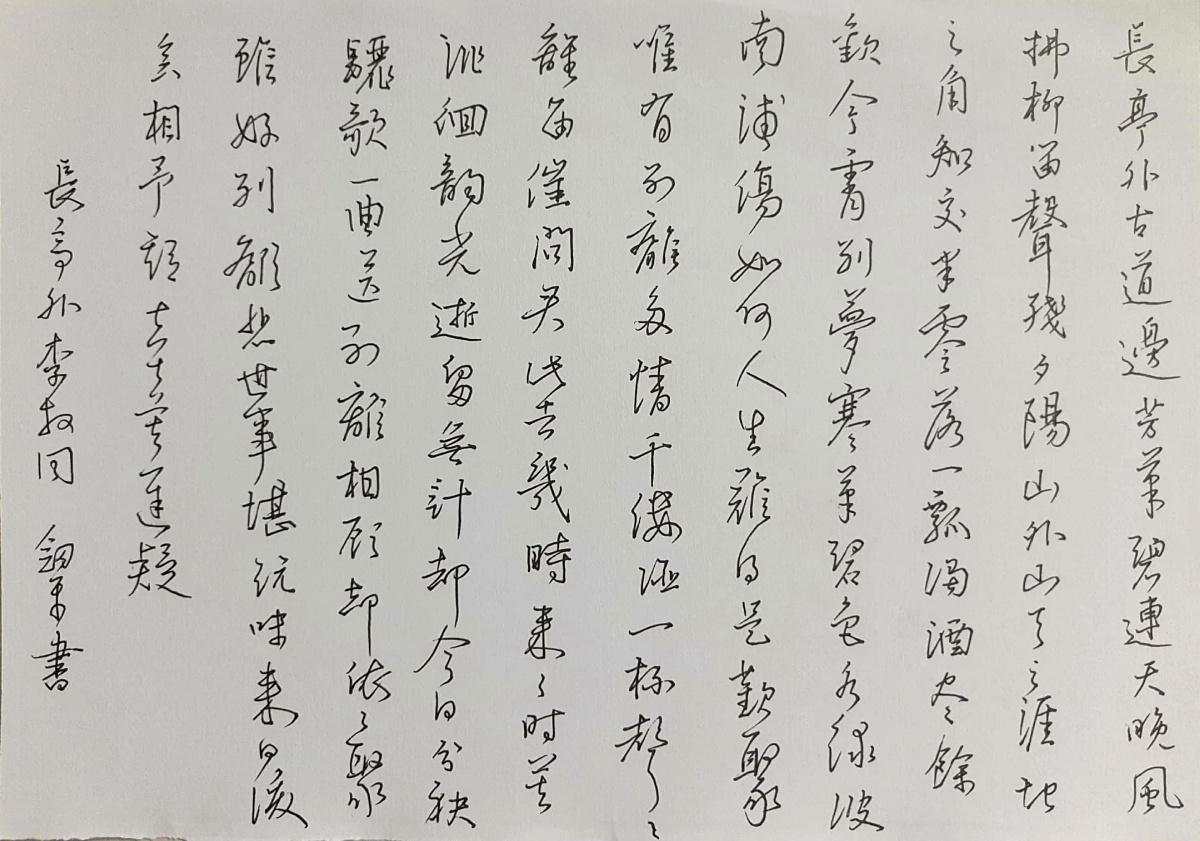 長亭外古道邊芳草碧連天晚風
拂柳笛聲殘夕陽山外山天之涯地
之角知交半零落一瓢濁酒盡餘
歡今宵別夢寒草碧色水綠波
南浦傷如何人生難得是歡聚
唯有別離多情千縷酒一杯聲々
離笛催問君此去幾時來々時莫
徘徊韶光逝留無計却今日分袂
驪歌一曲送別離相顾却依々聚
雖好別雖悲世事堪玩味來日後
会相予期去去莫遲疑
長亭外李叔同 書